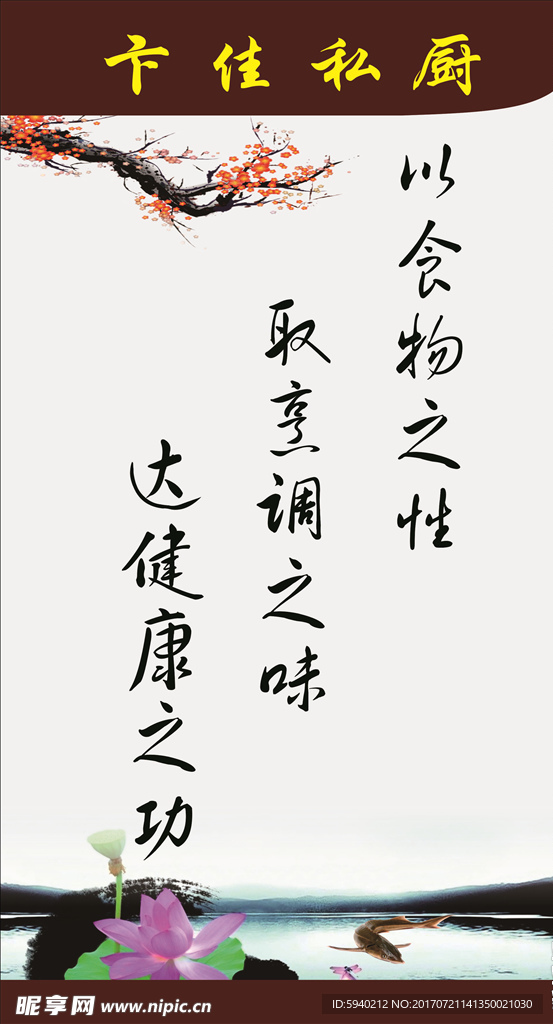 卞佳私厨
以食物之性
取烹调之味
达健康之功
昵享网 www.nipic.cn
ID:5940212 NO:20170721141350021030